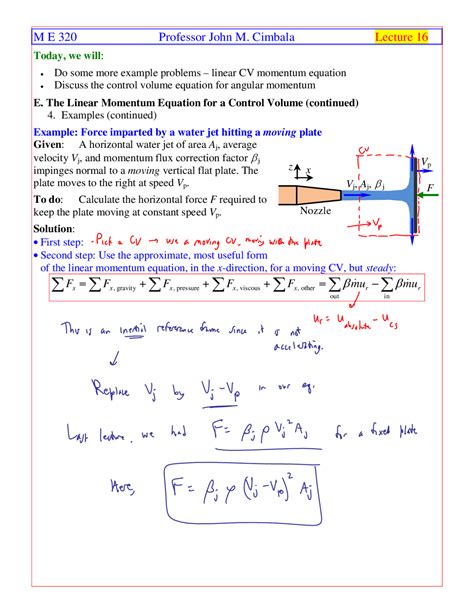 M E 320 Professor John M. Cimbala Lecture 16
Today, we will:
• Do some more example problems – linear CV momentum equation
• Discuss the control volume equation for angular momentum
E. The Linear Momentum Equation for a Control Volume (continued)
4. Examples (continued)
Example: Force imparted by a water jet hitting a moving plate
Given: A horizontal water jet of area Aj, average
velocity Vj, and momentum flux correction factor βj
impinges normal to a moving vertical flat plate. The
plate moves to the right at speed Vp.
To do: Calculate the horizontal force F required to
keep the plate moving at constant speed Vp.
CV
z
x
Vp
Vj, Aj, βj
F
Nozzle
→Vp
Solution:
• First step: • Pick a CV → use a moving CV, moving with the plate
• Second step: Use the approximate, most useful form
of the linear momentum equation, in the x-direction, for a moving CV, but steady:
∑Fx = ∑Fx, gravity + ∑Fx, pressure + ∑Fx, viscous + ∑Fx, other = ∑out βṁur − ∑in βṁur
ur = uabsolute − ucs
This is an inertial reference frame since it is not
accelerating.
↓
Replace Vj by Vj−Vp in our eq.
Last lecture, we had F = βj ρ Vj² Aj for a fixed plate
Here, F = βj ρ (Vj − Vp)² Aj